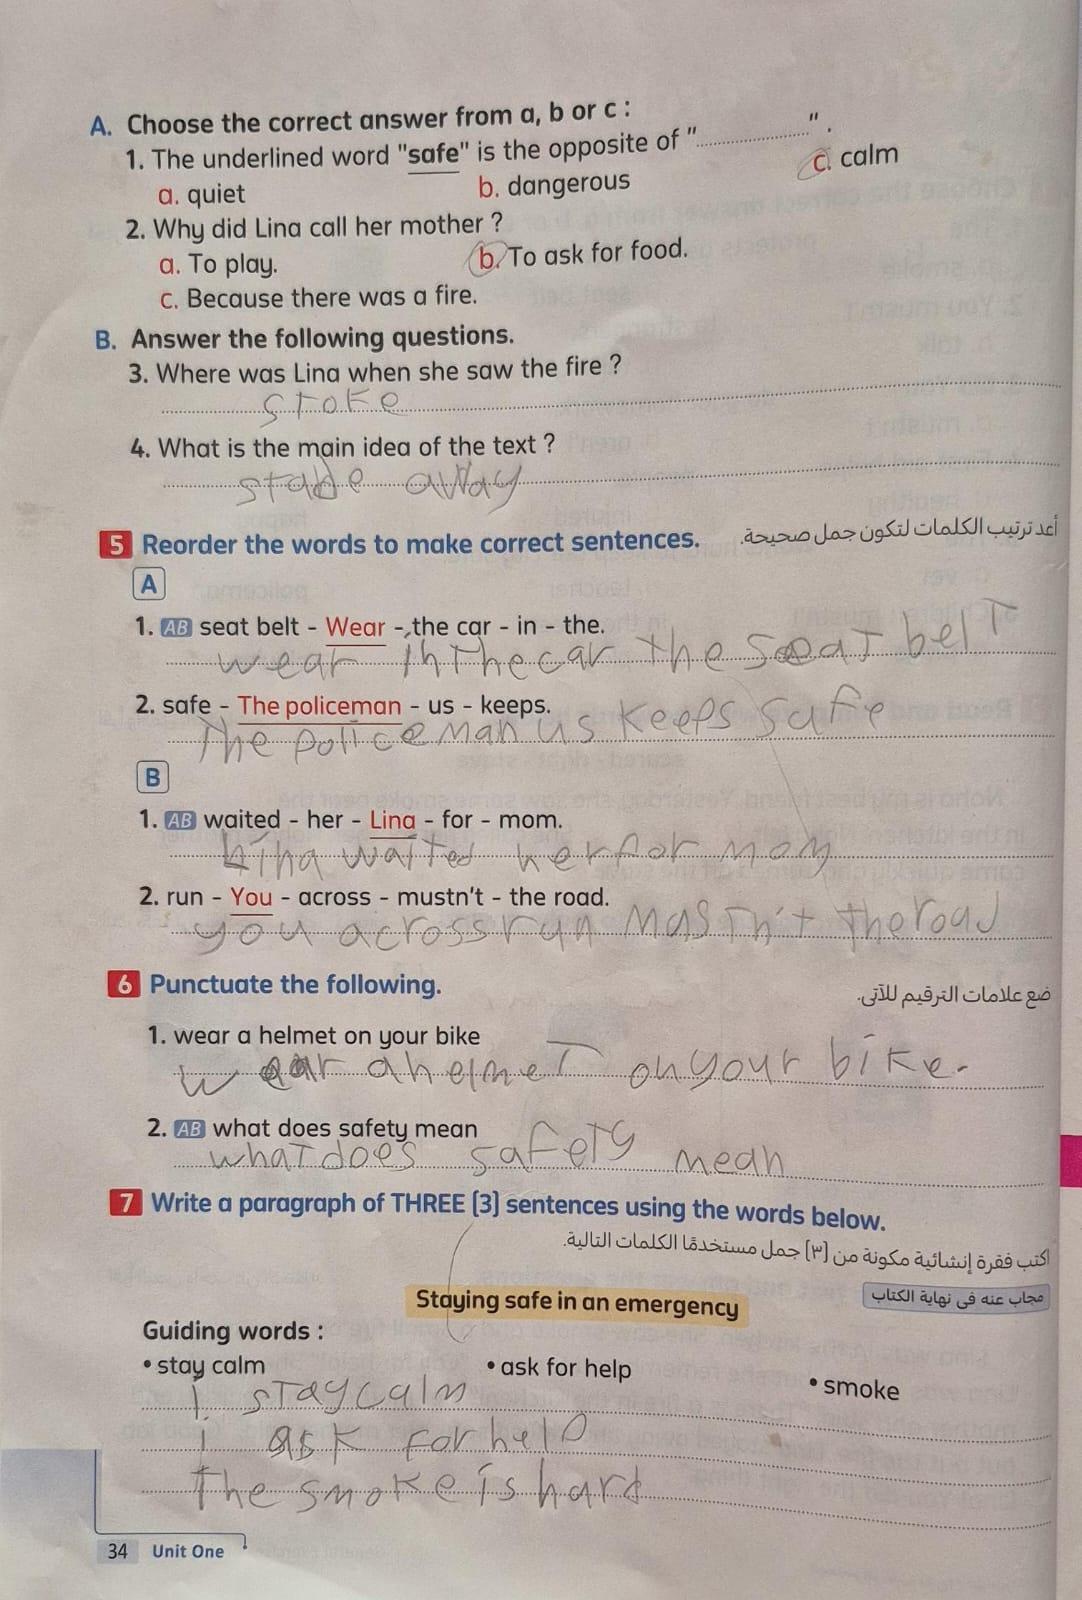 A. Choose the correct answer from a, b or c :
1. The underlined word "safe" is the opposite of "..............".
a. quiet b. dangerous c. calm
2. Why did Lina call her mother ?
a. To play. b. To ask for food.
c. Because there was a fire.
B. Answer the following questions.
3. Where was Lina when she saw the fire ?
stoke
4. What is the main idea of the text ?
away
5 Reorder the words to make correct sentences. أعد ترتيب الكلمات لتكون جمل صحيحة.
A
1. AB seat belt - Wear - the car - in - the.
wear in the car the seat belt
2. safe - The policeman - us - keeps.
The policeman us keeps safe
B
1. AB waited - her - Lina - for - mom.
Lina waited her for mom
2. run - You - across - mustn't - the road.
you across run masTn't the road
6 Punctuate the following. ضع علامات الترقيم للآتى.
1. wear a helmet on your bike
wear a helmeT on your bike.
2. AB what does safety mean
what does safety mean
7 Write a paragraph of THREE (3) sentences using the words below.
اكتب فقرة إنشائية مكونة من (٣) جمل مستخدمًا الكلمات التالية.
مجاب عنه فى نهاية الكتاب
Staying safe in an emergency
Guiding words :
• stay calm • ask for help • smoke
i stay calm
i ask for help
The smoke is hard
34 Unit One